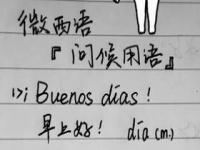 微西语
『问候用语』
1>¡Buenos días!
早上好! día(m.)